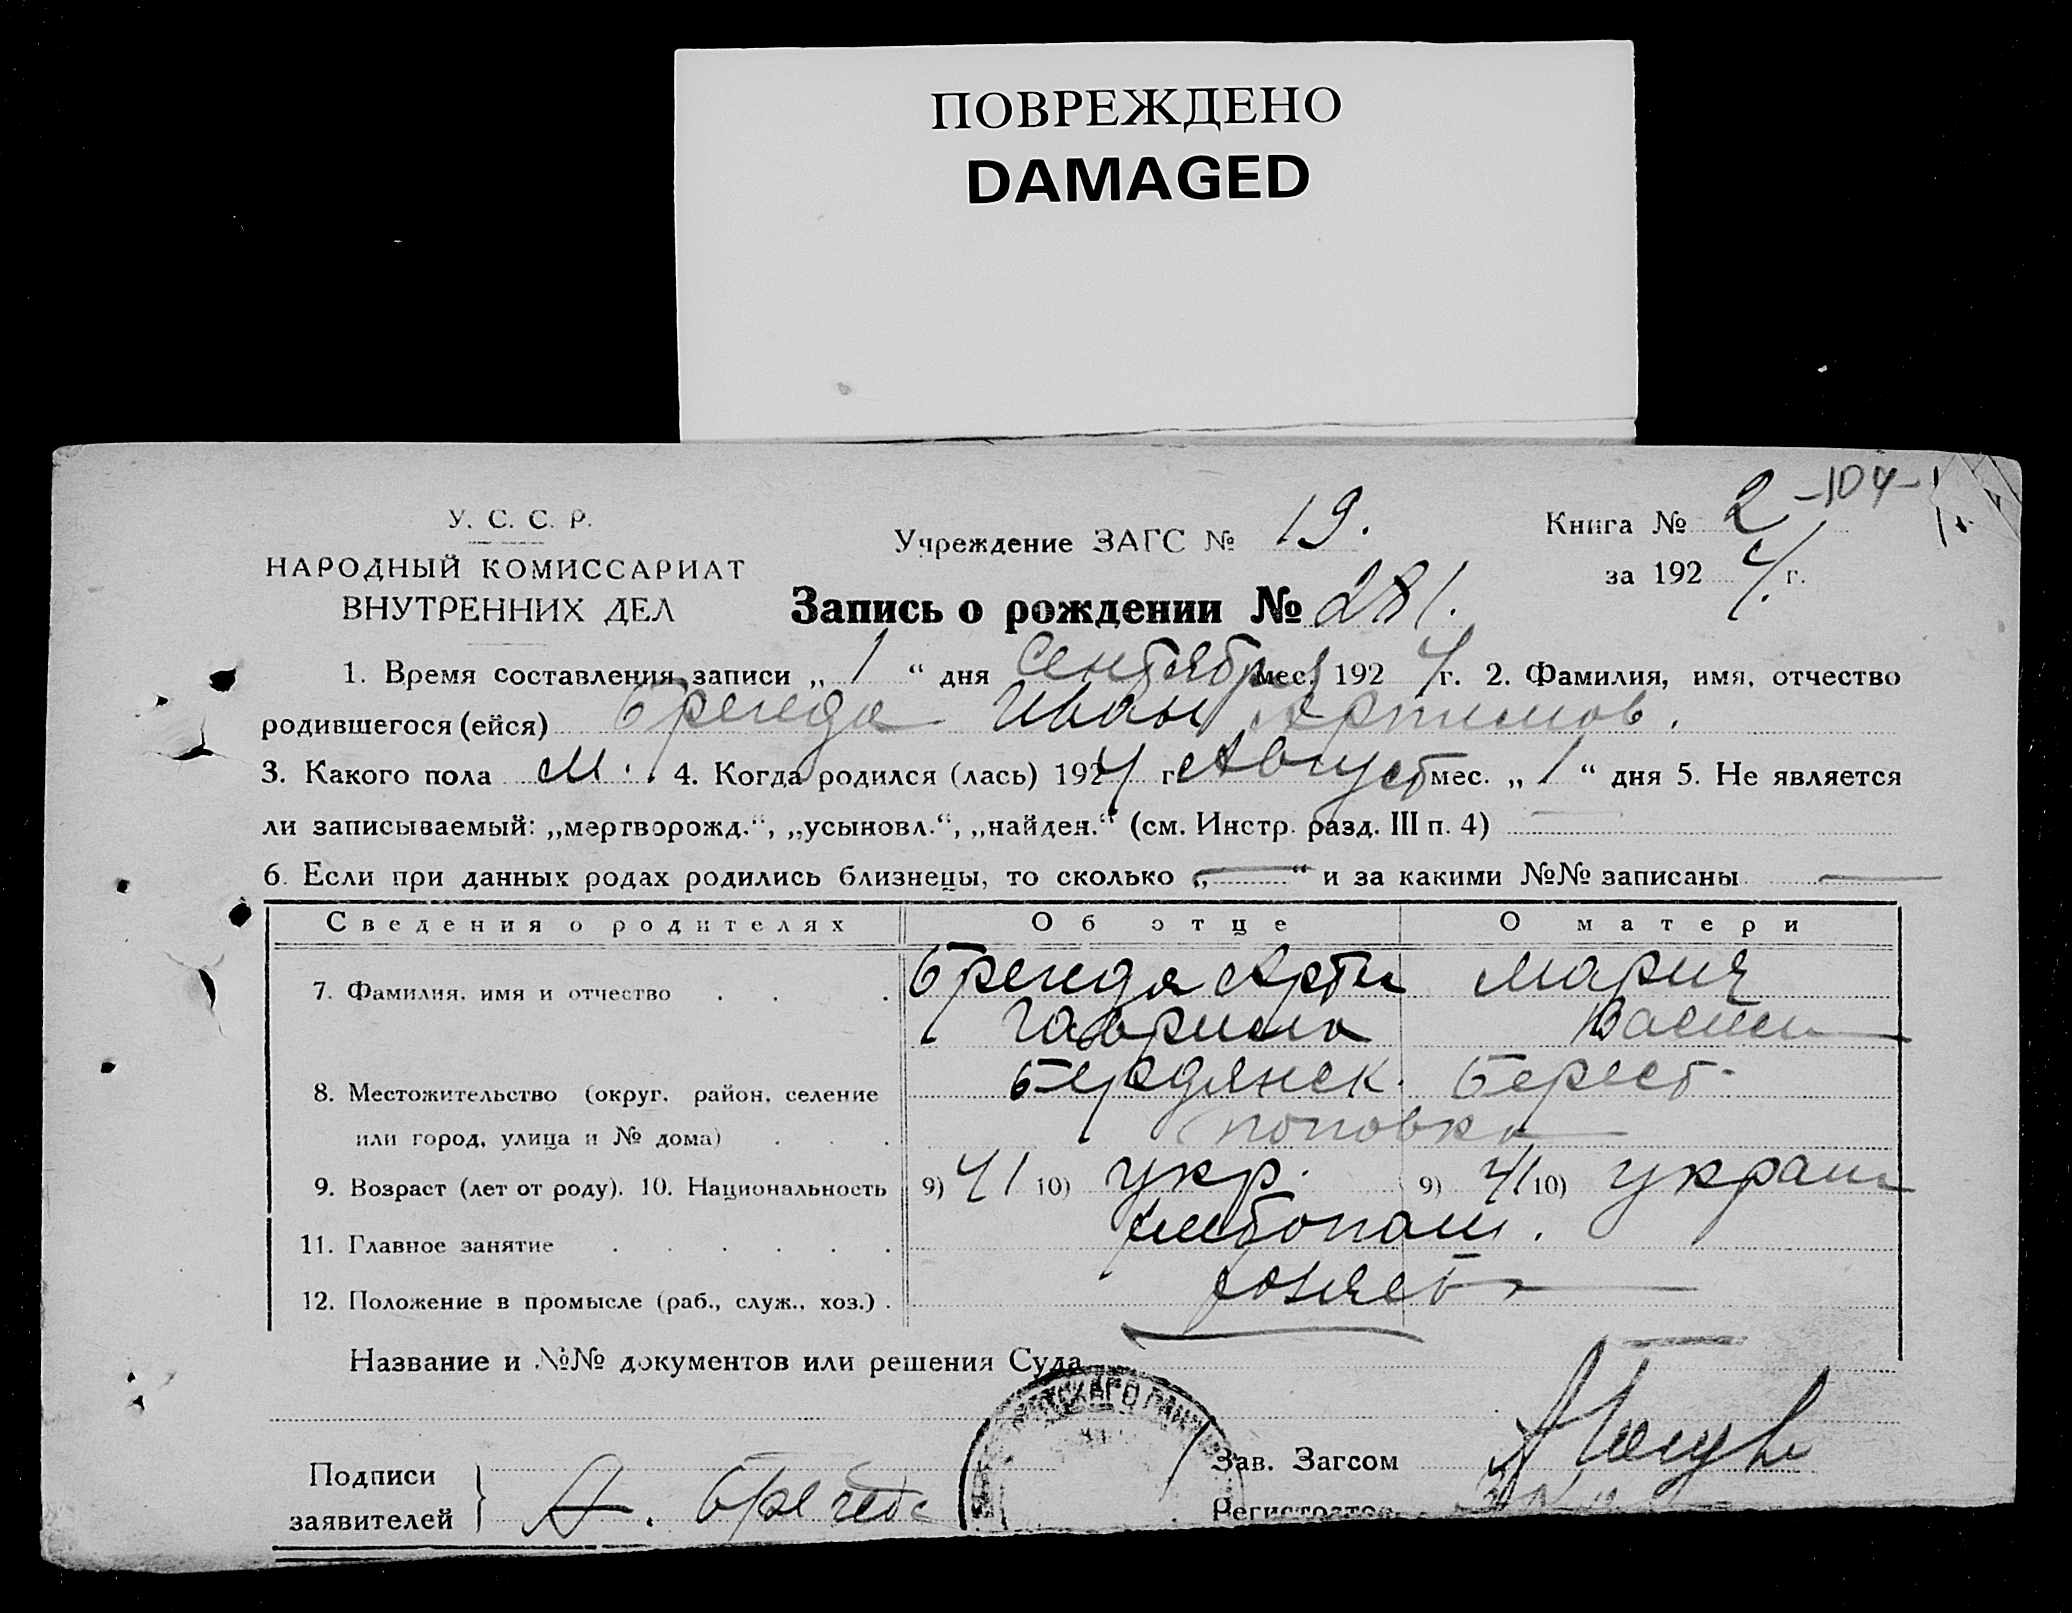 ПОВРЕЖДЕНО
DAMAGED
-104-
У. С. С. Р.
НАРОДНЫЙ КОМИССАРИАТ
ВНУТРЕННИХ ДЕЛ
Учреждение ЗАГС № 19.
Книга № 2
за 1924 г.
Запись о рождении № 281.
1. Время составления записи „ 1 “ дня Сентября мес. 1924 г. 2. Фамилия, имя, отчество
родившегося (ейся) Брегеда Иван Артимов.
3. Какого пола м. 4. Когда родился (лась) 1924 г. Август мес. „ 1 “ дня 5. Не является
ли записываемый: „мертворожд.“, „усыновл.“, „найден.“ (см. Инстр. разд. III п. 4) —
6. Если при данных родах родились близнецы, то сколько „—“ и за какими №№ записаны —
Сведения о родителях Об отце О матери
7. Фамилия, имя и отчество Брегеда Арти Мария
Гаврило Васил
8. Местожительство (округ, район, селение Бердянск. Берест.
или город, улица и № дома) Поповка
9. Возраст (лет от роду). 10. Национальность 9) 41 10) укр. 9) 41 10) украин
11. Главное занятие хлебопаш.
12. Положение в промысле (раб., служ., хоз.) хозяев
Название и №№ документов или решения Суда
Подписи
заявителей А. Брегеда
Зав. Загсом
Регистратор